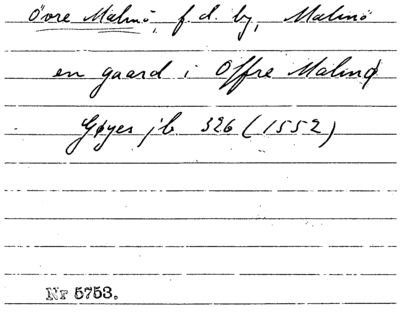 Övre Malmö, f.d. by, Malmö
en gaard i Offre Malmø
Gøyes jb 326 (1552)
Nr 5753.